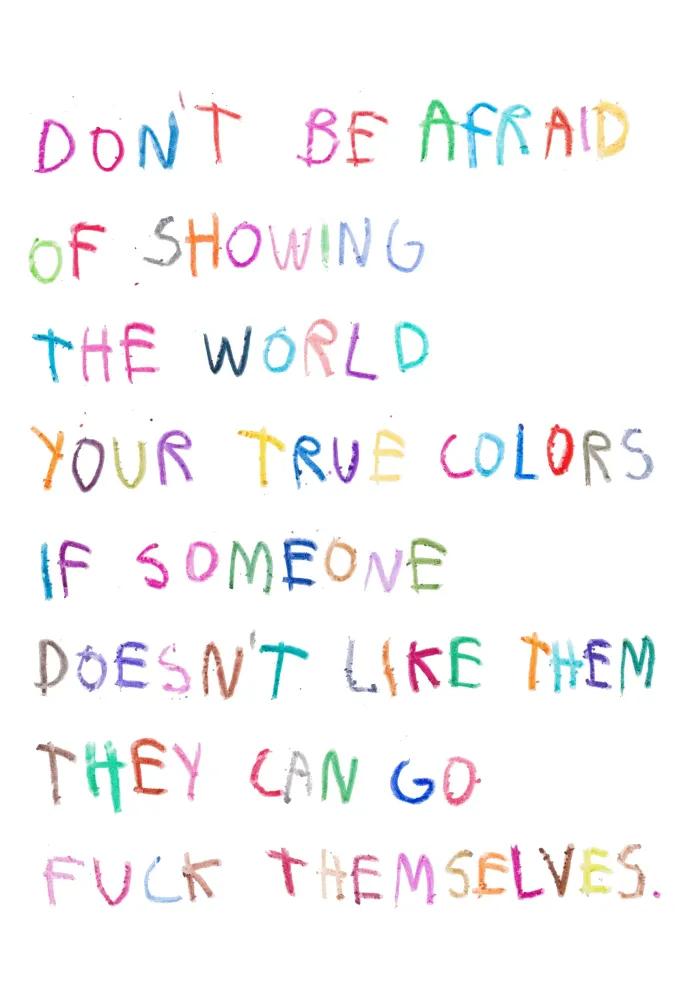 DON'T BE AFRAID
OF SHOWING
THE WORLD
YOUR TRUE COLORS
IF SOMEONE
DOESN'T LIKE THEM
THEY CAN GO
FUCK THEMSELVES.